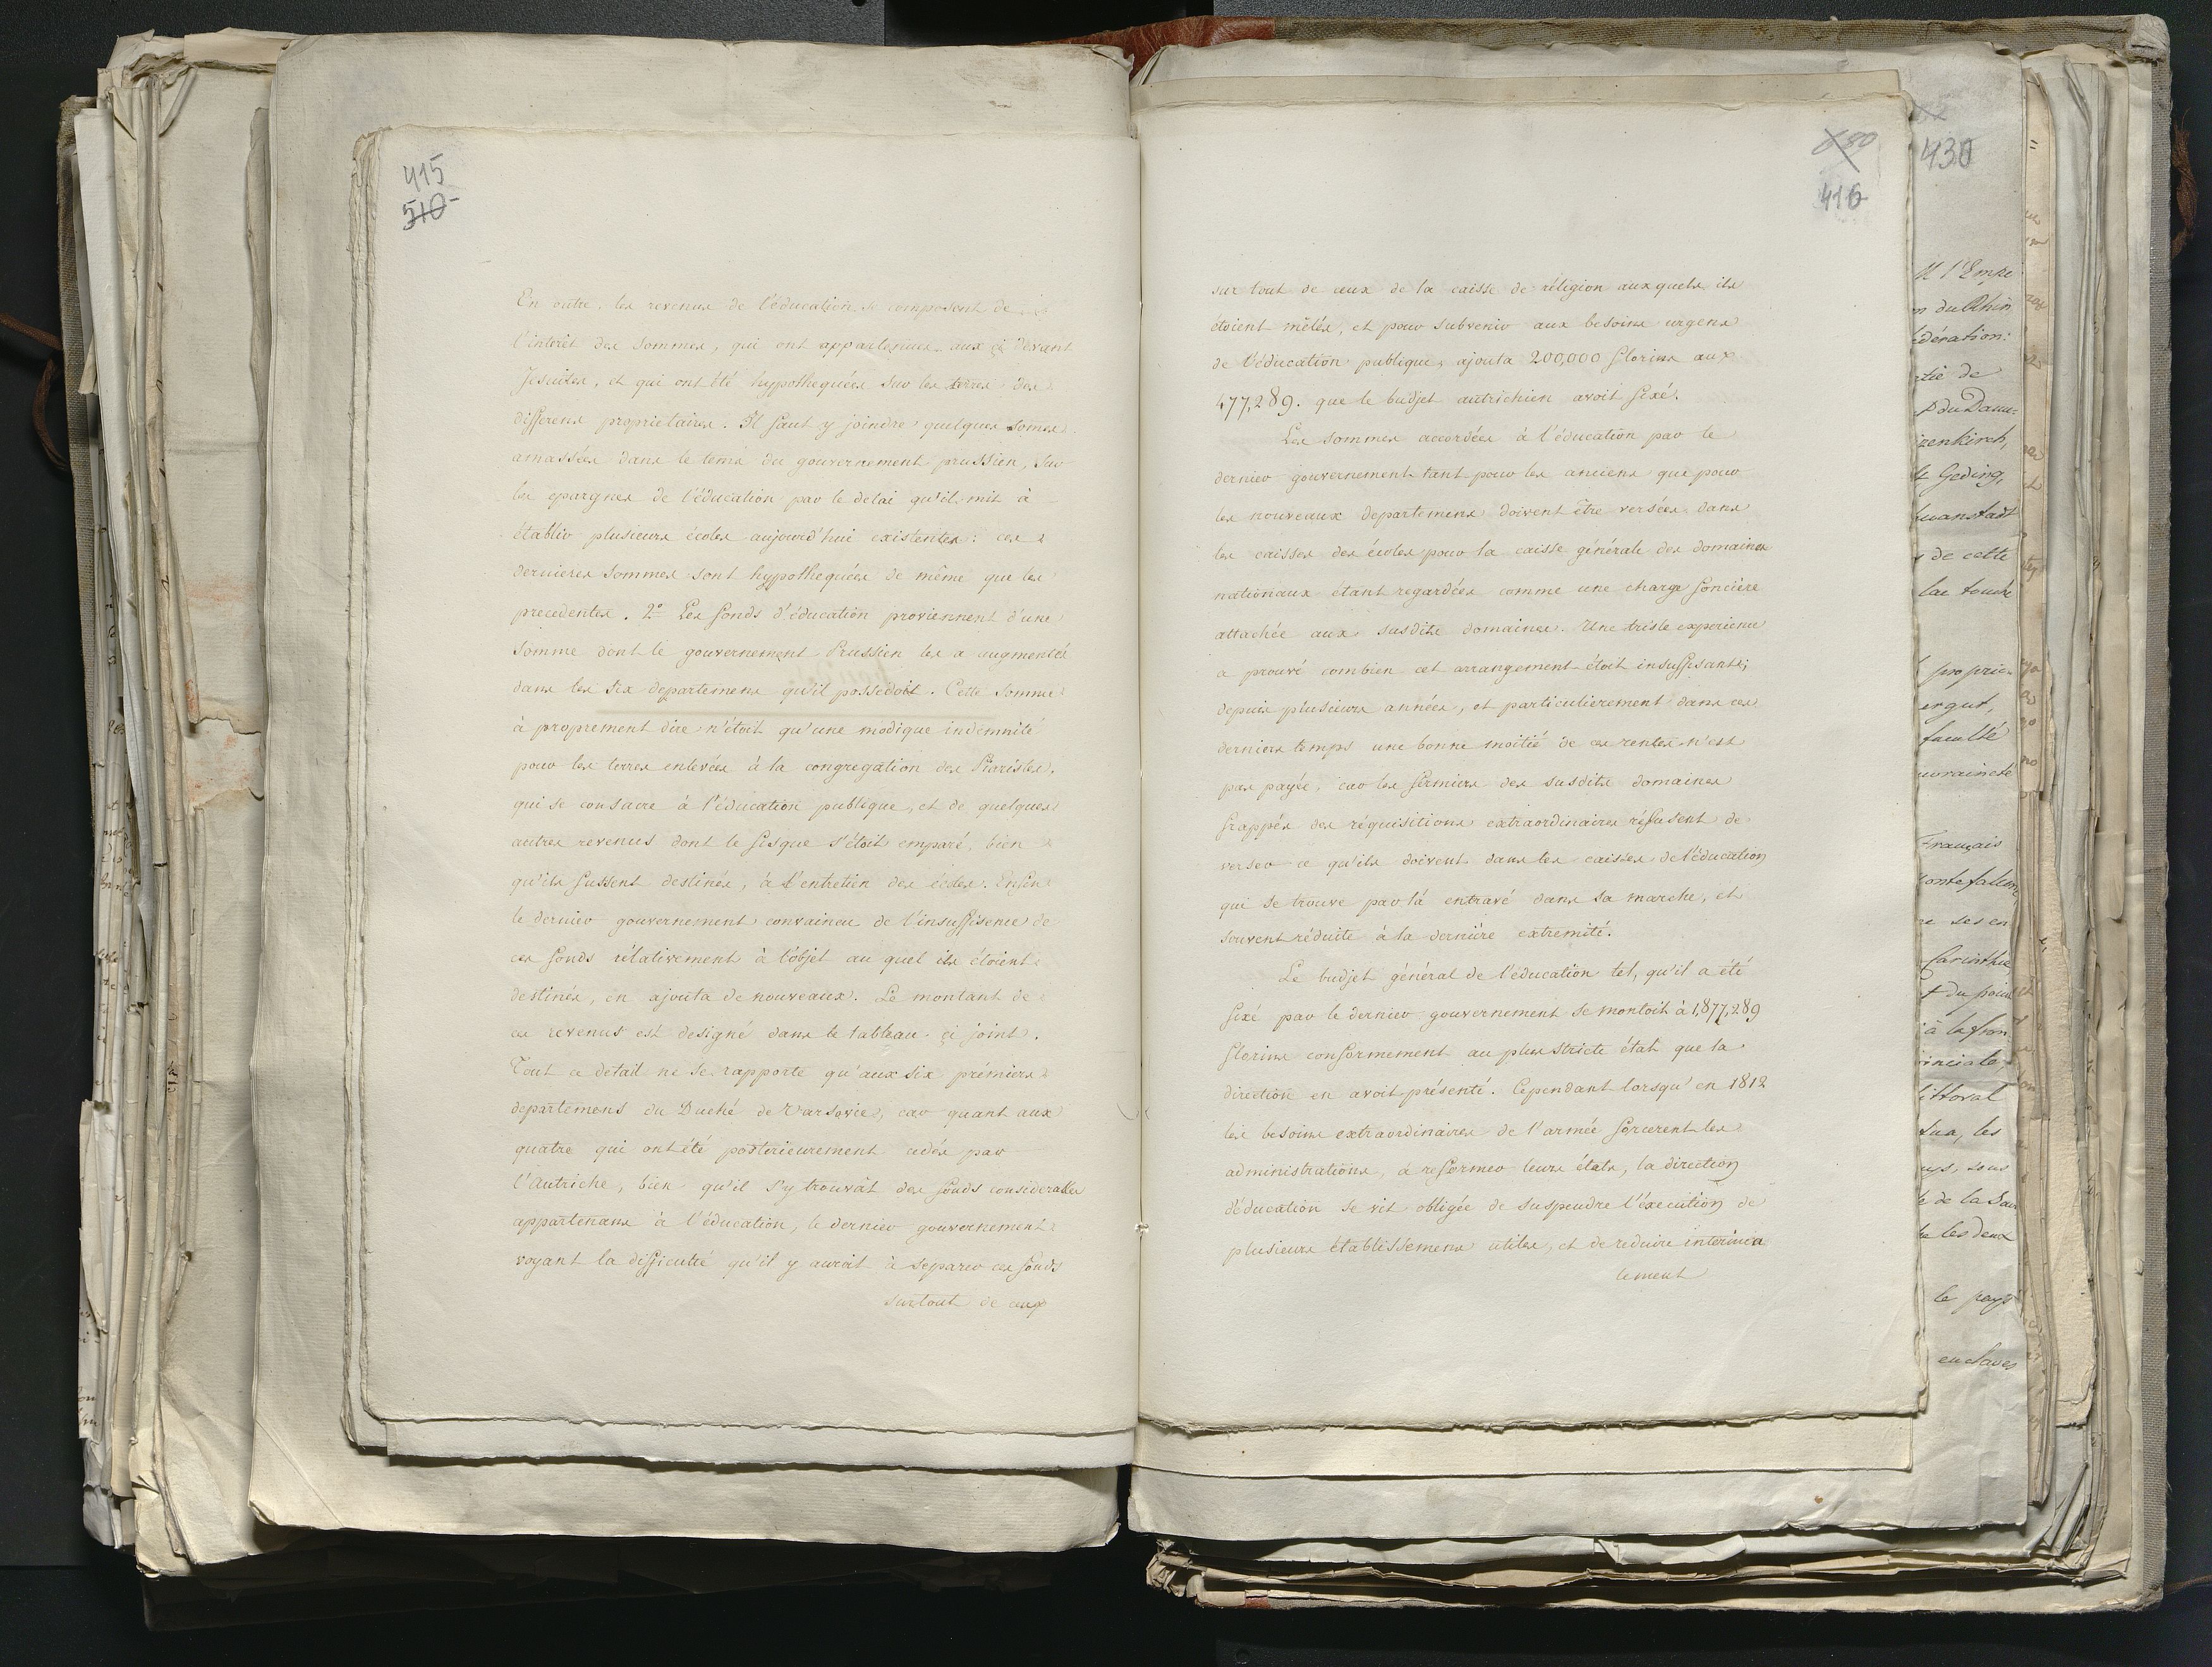 415
510
En outre, les revenus de l'éducation se composent de
l'intérêt des sommes, qui ont appartenues aux çi devant
Jesuites, et qui ont été hypothequées sur les terres des
differens proprietaires. Il faut y joindre quelques somes
amassées dans le tems du gouvernement prussien, sur
les epargnes de l'éducation par le delai qu'il mit à
établir plusieurs écoles aujourd'hui existentes: ces
dernieres sommes sont hypothequées de même que les
precedentes. 2º Les fonds d'éducation proviennent d'une
somme dont le gouvernement Prussien les a augmentés
dans les six departemens qu'il possedoit. Cette somme
à proprement dire n'étoit qu'une modique indemnité
pour les terres enlevées à la congregation des Piaristes,
qui se consacre à l'éducation publique, et de quelques
autres revenus dont le fisque s'étoit emparé, bien
qu'ils fussent destinés, à l'entretien des écoles. Enfin
le dernier gouvernement convaincu de l'insuffisence de
ces fonds rélativement à l'objet au quel ils étoient
destinés, en ajouta de nouveaux. Le montant de
ces revenus est designé dans le tableau çi joint.
Tout ce detail ne se rapporte qu'aux six prémiers
departemens du Duché de Varsovie, car quant aux
quatre qui ont été postérieurement cedés par
l'Autriche, bien qu'il s'y trouvât des fonds considerables
appartenans à l'éducation, le dernier gouvernement
voyant la difficulté qu'il y auroit à separer ces fonds
surtout de ceux
416
sur tout de ceux de la caisse de réligion aux quels ils
étoient mêlés, et pour subvenir aux besoins urgens
de l'éducation publique, ajouta 200,000 florins aux
477,289. que le budjet autrichien avoit fixé.
Les sommes accordées à l'éducation par le
dernier gouvernement tant pour les anciens que pour
les nouveaux departemens doivent être versées dans
les caisses des écoles pour la caisse générale des domaines
nationaux étant regardées comme une charge foncière
attachée aux susdits domaines. Une triste experience
a prouvé combien cet arrangement étoit insuffisant;
depuis plusieurs années, et particulierement dans ces
derniers temps une bonne moitié de ces rentes n'est
pas payée, car les fermiers des susdits domaines
frappés des réquisitions extraordinaires réfusent de
verser ce qu'ils doivent dans les caisses de l'éducation
qui se trouve par là entravé dans sa marche, et
souvent réduite à la derniére extremité.
Le budjet général de l'education tel, qu'il a été
fixé par le dernier gouvernement se montoit à 1,877,289
florins conformement au plus stricte état que la
direction en avoit présenté. Cependant lorsqu'en 1812
les besoins extraordinaires de l'armée forcerent les
administrations, à reformer leurs états, la direction
d'éducation se vit obligée de suspendre l'éxecution de
plusieurs établissemens utiles, et de reduire interimea
lement
430
M l'Empe
n du Rhin
édération:
tié de
P du Danu-
zenkirch,
& Geding,
de cette
lac touche
proprie-
ergut,
faculté
Français
ses en
Carinthie
t du point
à la fron
littoral
les
sous
de la Sau
te les deux
le pays
enclaves